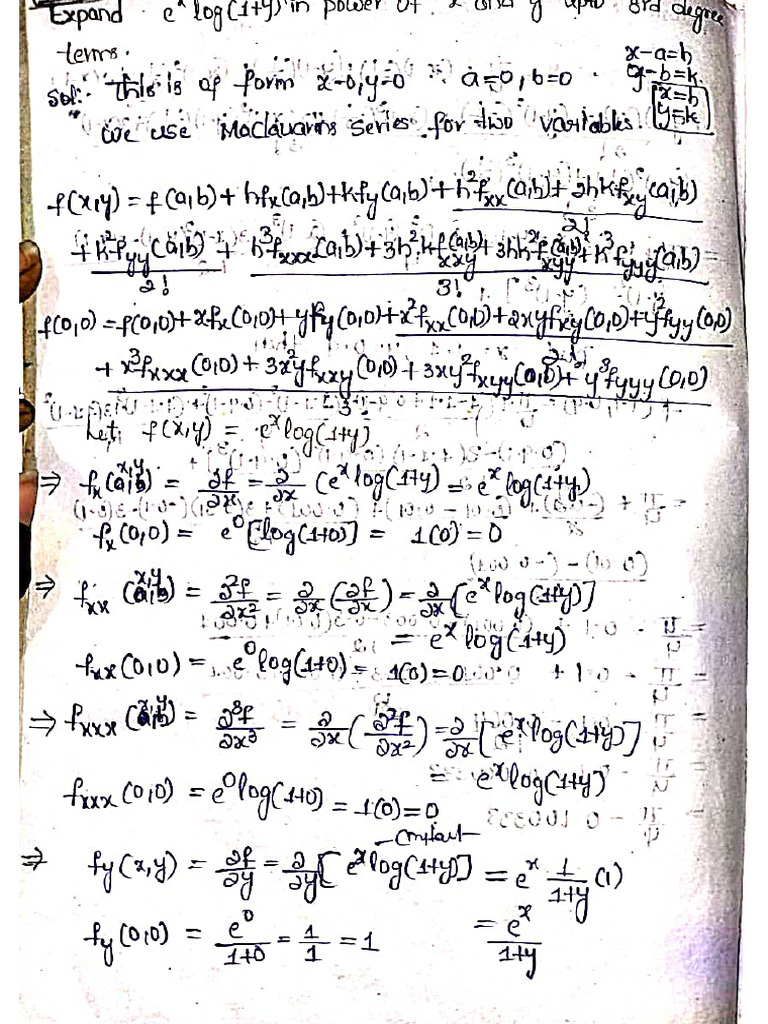 Expand e^x log(1+y) in power of x and y upto 3rd degree
terms.
x-a=h
y-b=k
x=h
y=k
Sol:- This is of form x=0, y=0 a=0, b=0
We use Maclaurins series for two variables.
f(x,y) = f(a,b) + hfx(a,b) + kfy(a,b) + h²fxx(a,b) + 2hkfxy(a,b)
+ k²fyy(a,b) / 2! + h³fxxx(a,b) + 3h²kfxxy(a,b) + 3hk²fxyy(a,b) + k³fyyy(a,b) / 3!
f(0,0) = f(0,0) + xfx(0,0) + yfy(0,0) + x²fxx(0,0) + 2xyfxy(0,0) + y²fyy(0,0) / 2!
+ x³fxxx(0,0) + 3x²yfxxy(0,0) + 3xy²fxyy(0,0) + y³fyyy(0,0) / 3!
Let, f(x,y) = e^x log(1+y)
⇒ fx(x,y) = ∂f/∂x = ∂/∂x (e^x log(1+y) = e^x log(1+y)
fx(0,0) = e^0 [log(1+0)] = 1(0) = 0
⇒ fxx(x,y) = ∂²f/∂x² = ∂/∂x (∂f/∂x) = ∂/∂x [e^x log(1+y)]
= e^x log(1+y)
fxx(0,0) = e^0 log(1+0) = 1(0) = 0
⇒ fxxx(x,y) = ∂³f/∂x³ = ∂/∂x (∂²f/∂x²) = ∂/∂x [e^x log(1+y)]
= e^x log(1+y)
fxxx(0,0) = e^0 log(1+0) = 1(0) = 0
⇒ fy(x,y) = ∂f/∂y = ∂/∂y [e^x log(1+y)] = e^x 1/1+y (1)
fy(0,0) = e^0/1+0 = 1/1 = 1 = e^x/1+y